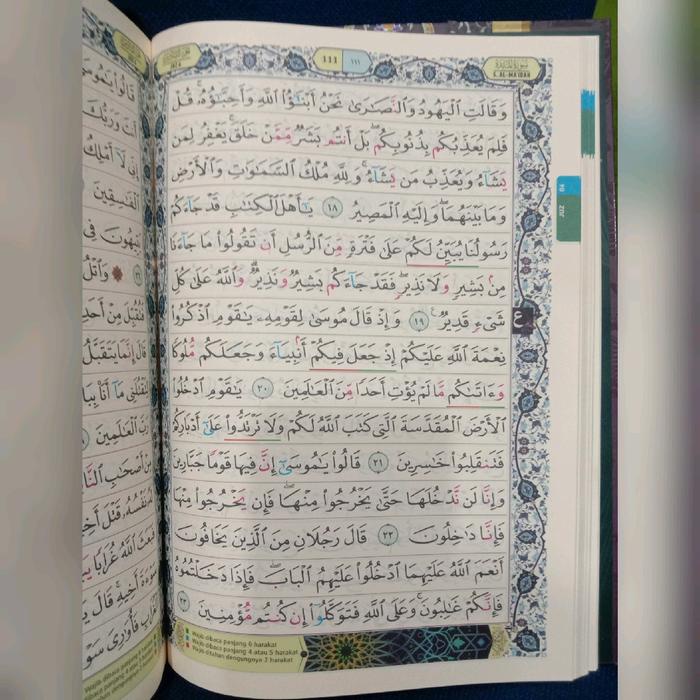 ١١١ 111
سُورَةُ الْمَائِدَة
S. AL-MA'IDAH
وَقَالَتِ الْيَهُودُ وَالنَّصَارَىٰ نَحْنُ أَبْنَاؤُا اللَّهِ وَأَحِبَّاؤُهُ ۚ قُلْ
فَلِمَ يُعَذِّبُكُمْ بِذُنُوبِكُمْ ۖ بَلْ أَنْتُمْ بَشَرٌ مِمَّنْ خَلَقَ ۚ يَغْفِرُ لِمَنْ
يَشَاءُ وَيُعَذِّبُ مَنْ يَشَاءُ ۚ وَلِلَّهِ مُلْكُ السَّمَاوَاتِ وَالْأَرْضِ
وَمَا بَيْنَهُمَا ۖ وَإِلَيْهِ الْمَصِيرُ ١٨ يَا أَهْلَ الْكِتَابِ قَدْ جَاءَكُمْ
رَسُولُنَا يُبَيِّنُ لَكُمْ عَلَىٰ فَتْرَةٍ مِنَ الرُّسُلِ أَنْ تَقُولُوا مَا جَاءَنَا
مِنْ بَشِيرٍ وَلَا نَذِيرٍ ۖ فَقَدْ جَاءَكُمْ بَشِيرٌ وَنَذِيرٌ ۗ وَاللَّهُ عَلَىٰ كُلِّ
شَيْءٍ قَدِيرٌ ١٩ وَإِذْ قَالَ مُوسَىٰ لِقَوْمِهِ يَا قَوْمِ اذْكُرُوا
نِعْمَةَ اللَّهِ عَلَيْكُمْ إِذْ جَعَلَ فِيكُمْ أَنْبِيَاءَ وَجَعَلَكُمْ مُلُوكًا
وَءَاتَىٰكُمْ مَا لَمْ يُؤْتِ أَحَدًا مِنَ الْعَالَمِينَ ٢٠ يَا قَوْمِ ادْخُلُوا
الْأَرْضَ الْمُقَدَّسَةَ الَّتِي كَتَبَ اللَّهُ لَكُمْ وَلَا تَرْتَدُّوا عَلَىٰ أَدْبَارِكُمْ
فَتَنْقَلِبُوا خَاسِرِينَ ٢١ قَالُوا يَا مُوسَىٰ إِنَّ فِيهَا قَوْمًا جَبَّارِينَ
وَإِنَّا لَنْ نَدْخُلَهَا حَتَّىٰ يَخْرُجُوا مِنْهَا ۖ فَإِنْ يَخْرُجُوا مِنْهَا
فَإِنَّا دَاخِلُونَ ٢٢ قَالَ رَجُلَانِ مِنَ الَّذِينَ يَخَافُونَ
أَنْعَمَ اللَّهُ عَلَيْهِمَا ادْخُلُوا عَلَيْهِمُ الْبَابَ ۖ فَإِذَا دَخَلْتُمُوهُ
فَإِنَّكُمْ غَالِبُونَ ۚ وَعَلَى اللَّهِ فَتَوَكَّلُوا إِنْ كُنْتُمْ مُؤْمِنِينَ ٢٣
Wajib dibaca panjang 6 harakat
Wajib dibaca panjang 4 atau 5 harakat
Wajib ditahan dengungnya 2 harakat
ع
JUZ